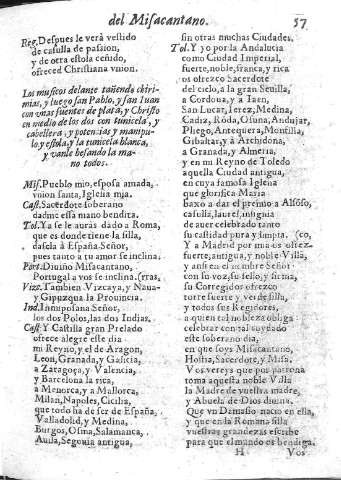 del Misacantano. 57
Rey. Despues le verà vestido
de casulla de passion,
y de otra estola ceñido,
ofreced Christiana vnion.
Los musicos delante tañendo chiri-
mias, y luego san Pablo, y san Iuan
con vnas fuentes de plata, y Christo
en medio de los dos con tunicela, y
cabellera, y potencias y manipu-
lo, y estola, y la tunicela blanca,
y vanle besando la ma-
no todos.
Mis. Pueblo mio, esposa amada,
vnion santa, Iglesia mia.
Cast. Sacerdote soberano
dadme essa mano bendita.
Tol. Ya se le auràs dado a Roma,
que es donde tiene la silla,
dasela à España Señor,
pues tauto a tu amor se inclina.
Port. Diuino Misacantano,
Portugal a vos se inclina. (rras,
Vizc. Tambien Vizcaya, y Naua-
y Gipuzqua la Prouincia.
Ind. Señor,
los dos Polos, las dos Indias.
Cast. Y Castilla gran Prelado
ofrece alegre este dia
mi Reyno, y el de Aragon,
Leon, Granada, y Galicia,
a Zaragoça, y Valencia,
y Barcelona la rica,
a Menorca, y a Mallorca,
Milan, Napoles, Cicilia,
que todo ha de ser de España,
Valladolid, y Medina,
Burgos, Osma, Salamanca,
Auila, Segouia antigua,
sin otras muchas Ciudades.
Tol. Y yo por la Andaluzia
como Ciudad Imperial,
fuerte, noble, franca, y rica
os ofrezco Sacerdote
del cielo, a la gran Seuilla,
a Cordoua, y a Iaen,
San Lucar, Ierez, Medina,
Cadiz, Ròda, Osuna, Andujar,
Pliego, Antequera, Montilla,
Gibaltar, y à Archidona,
a Granada, y Almeria,
y en mi Reyno de Toledo
aquella Ciudad antigua,
en cuya famosa Iglesia
que glorifica Maria
baxò a dar el premio a Alfòso,
casulla, laurel, insignia
de auer celebrado tanto
su castidad pura y limpia. (co,
Y a Madrid por mia os ofrez-
fuerte, antigua, y noble Villa,
y assi en el nombre Señor
con su voz, su sello, y firma,
su Corregidor ofrezco
torre fuerte y verde silla,
y todos sus Regidores,
a quien tal nobleza obliga
celebrar con tal cuydado
este soberano dia,
en que soys Misacantano,
Hostia, Sacerdote, y Missa.
Vos vereys que por patrona
toma aquesta noble Villa
la Madre de vuestra madre,
y Abuela de Dios diuina.
Que vn Damaso nacio en ella,
y que en la Romana silla
vuestras grandezas escriue
para que el mundo os bendiga.
H Vos